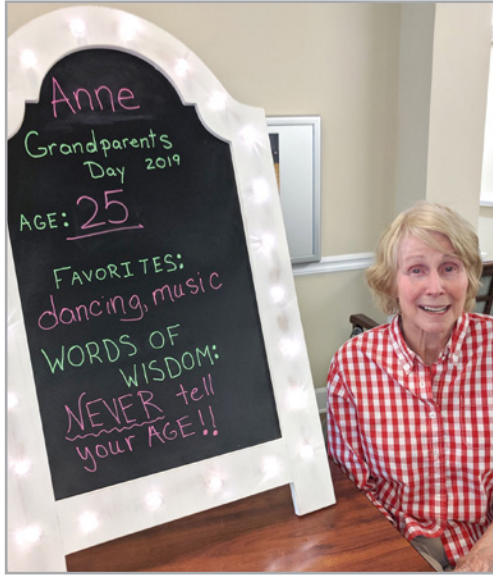 Anne
Grandparents
Day 2019
AGE: 25
FAVORITES:
dancing, music
WORDS OF
WISDOM:
NEVER tell
your AGE!!